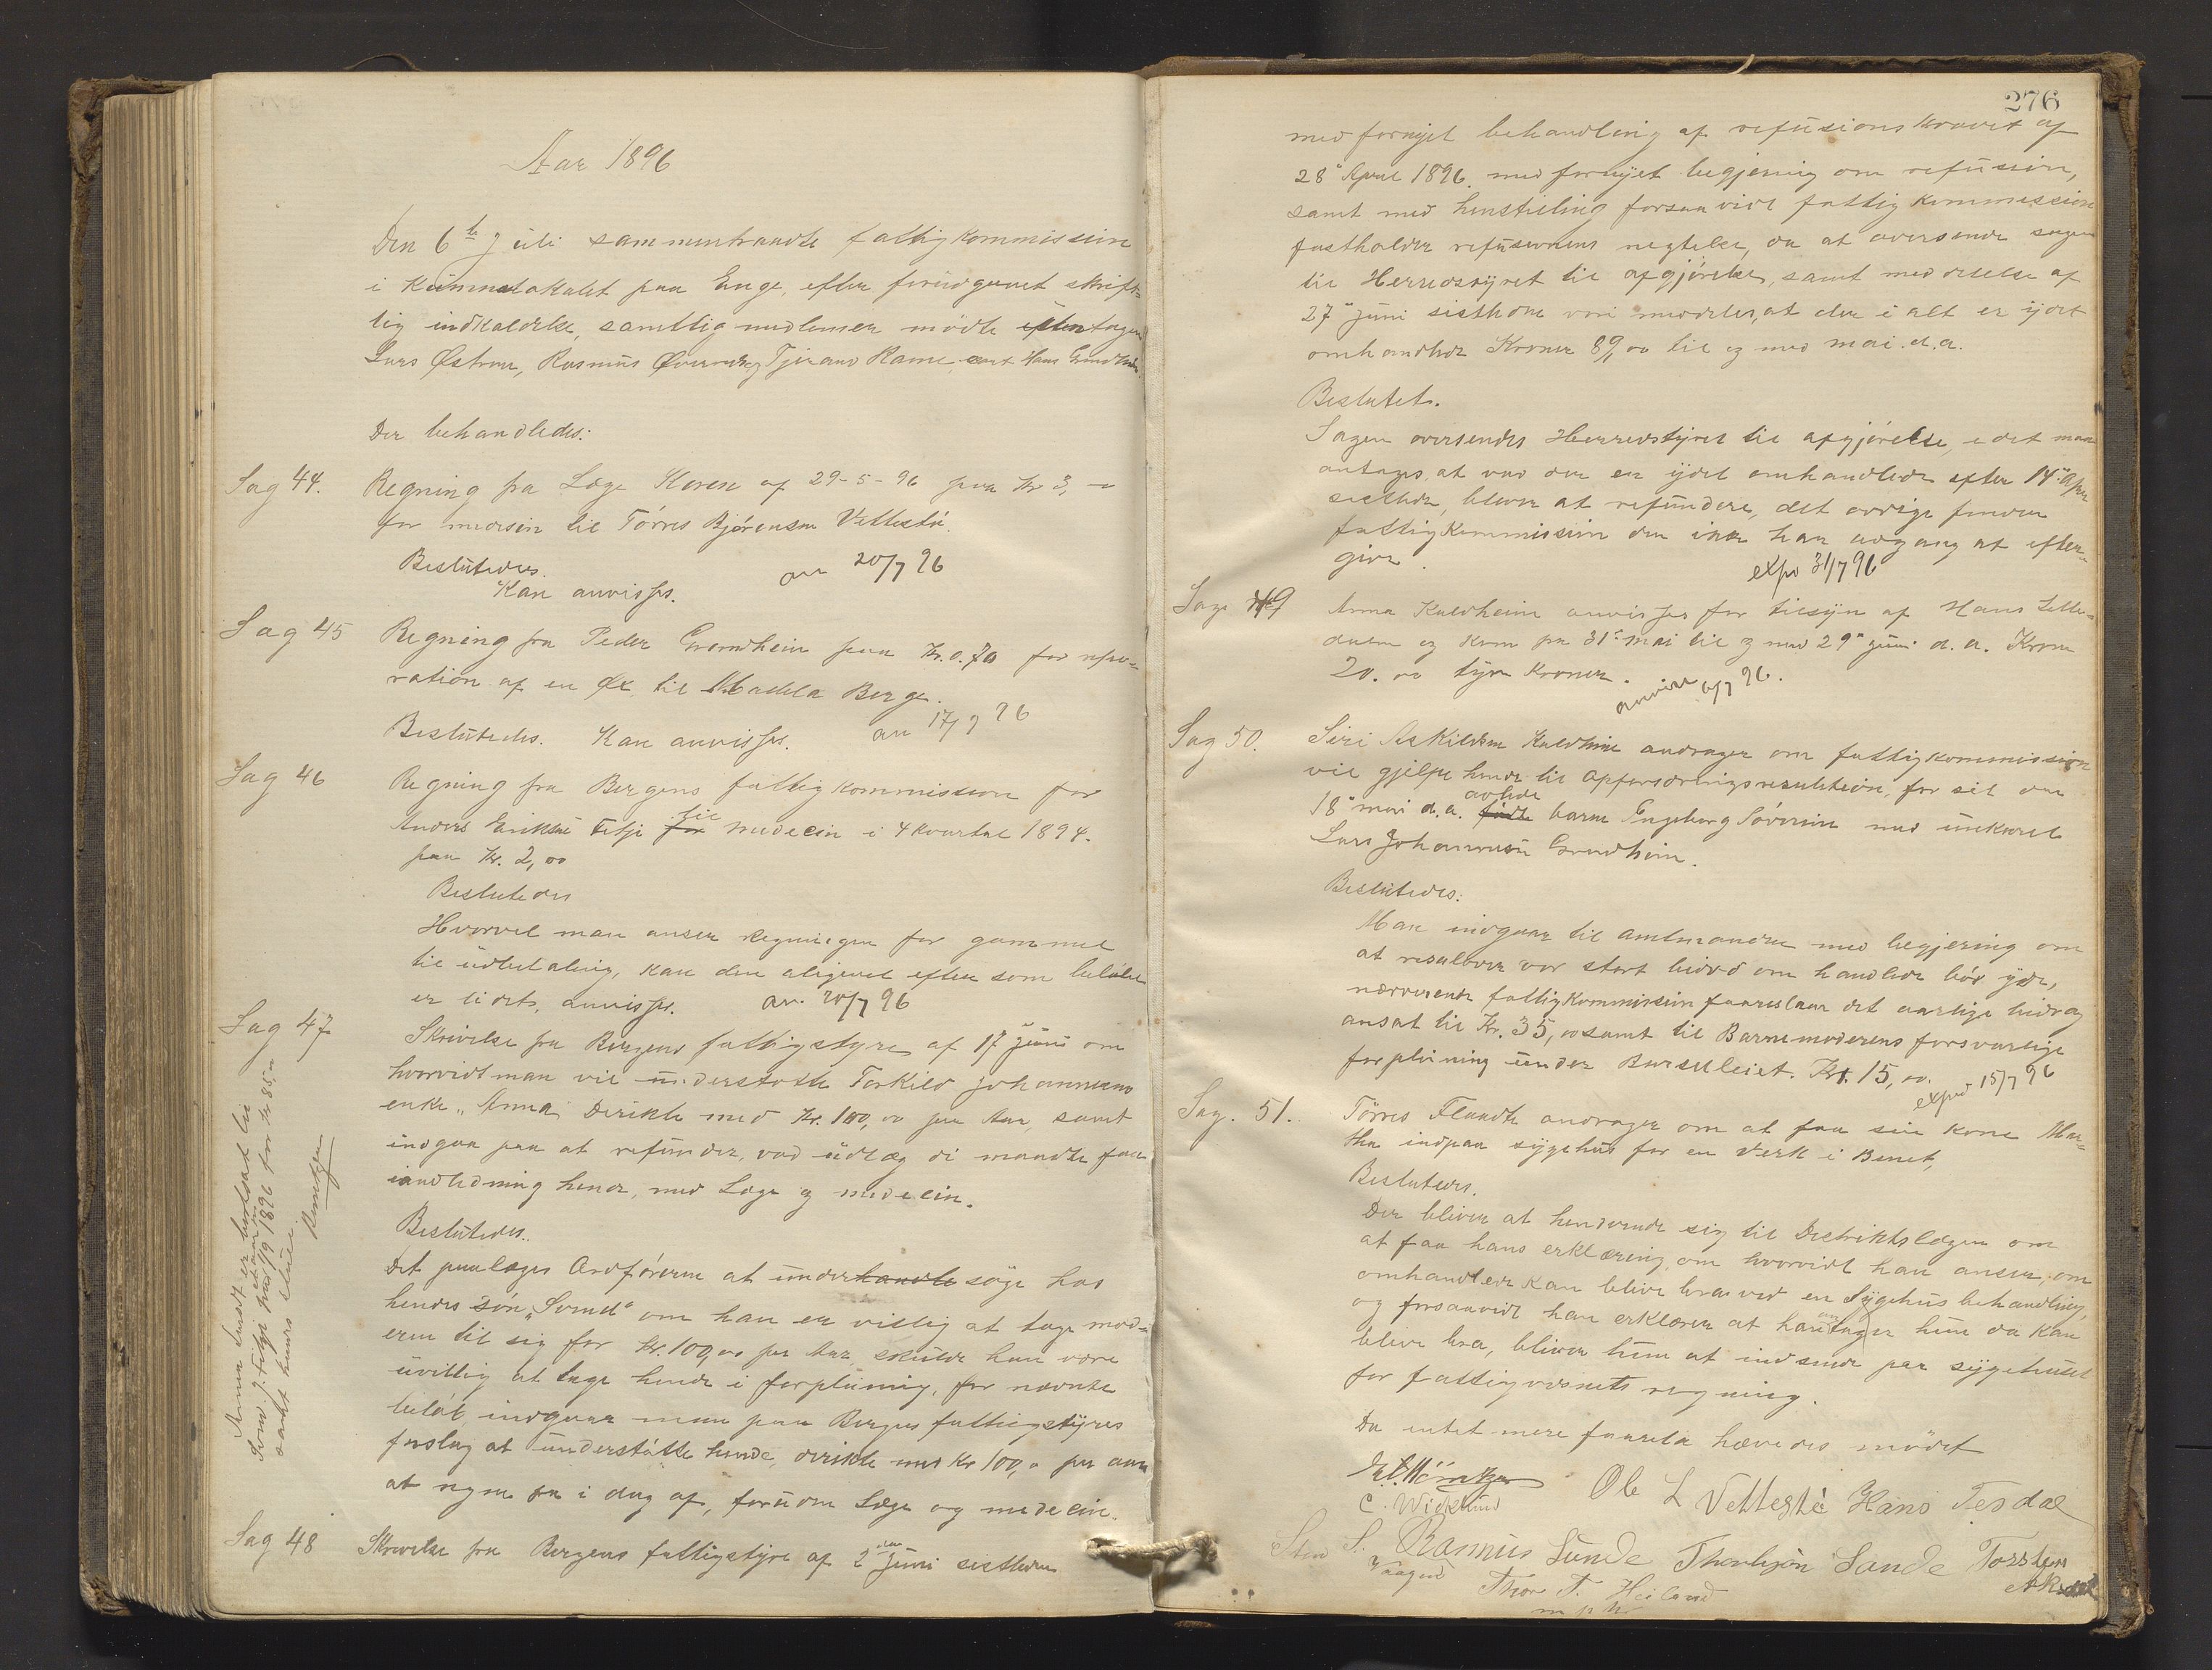 Aar 1896
Den 6te Juli sammentraadte fattigkommissionen
i Kummelokalet paa Enge, efter forudgaaet skrift-
lig indkaldelse, samtlig medlemer mödte
Lars Østrem, Rasmus Tjerand Rame, samt Hans
Der behandledes:
Sag 44.
Regning fra Læge Koren af 29-5-96 paa Kr 3,
for medisin til Törres Björensen Vettestö.
Besluttedes.
Kan anvisses. an 20/7 96
Sag 45
Regning fra Peder Grondheim paa Kr. 0.70 for repa-
ration af en til Madla Berge.
Besluttedes. Kan anvisses. an 17/7 96
Sag 46
Regning fra Bergens fattigkommission for
Anders Eriksen Tetje for til medecin i 4 kvartal 1894.
paa Kr. 2,00
Besluttedes
Hvorvel man anser Regningen for gammel
til udbetaling, kan den aligevel efter som belöbet
er lidet, anvisses. an. 20/7 96
Sag 47
Skrivelse fra Bergens fattigstyre af 17 Juni om
hvorvidt man vil understötte Torkild Johannesens
enke „Anna" Dirikte med Kr. 100,00 pr Aar, samt
indgaa paa at refundere, vad udlæg di maadte faa
i andledning hende, med Læge og medecin.
Besluttedes.
Det paalæges Ordföreren at underhandle söge hos
hendes sön „Svend" om han er villig at tage mod-
eren til sig for Kr. 100,00 pr Aar, skulde han være
uvillig at tage hende i forpleining, for nævnte
belöb, indgaar man paa Bergens fattigstyres
forslag at understötte hende, dirikte med Kr 100,0 pr aar
at regne fra i dag af, foruden Læge og medecin.
Anna Lundt er bortsat til
Svend J. Tetje fra 1/9 1896 for Kr 85,-
et aar om
samt huus stue
Sag 48
Skrivelse fra Bergens fattigstyre af 2den Juni sistleden
276
med fornyet behandling af refusionskravet af
28" April 1896. med fornyet begjering om refusion,
samt med henstilling forsaavidt fattigkommission
fastholder refusionens negtelse, da at oversende sagen
til Herredsstyret til afgjörelse, samt meddelelse af
27" juni sisthen meddeles, at der i alt er ydet
omhandlede Kroner 89,00 til og med mai d.a.
Beslutet.
Sagen oversendes Herredsstyret til afgjörelse, idet man
antages, at vad der er ydet omhandlede efter 14" April
sistleden, bliver at refundere, det øvrige finder
fattigkommission den ikke har adgang at efter-
give.
expd 31/7 96
Sag 49
Anna Kaldheim anvisses for tilsyn af Hans
og kone fra 31" mai til og med 29" juni d.a. Kroner
20.00 tyve kroner. anvist 6/7 96.
Sag 50.
Siri Askildsen Kaldheim andrager om fattigkommission
vil gjelpe hende til Opfordringsresulution, for sit den
18" mai d.a. födte avlede barn Engeborg Söverine med ungkarl
Lars Johannesen Grondheim.
Besluttedes.
Man indgaar til Amtmanden med begjering om
at resolvere vor stort bidrad omhandlede bör yde,
nærværende fattigkommission faareslaar det aarlige bidrag
ansat til Kr. 35,00 samt til Barnemoderens forsvarlige
forpleining under Barselleiet. Kr. 15,00.
exped 15/7 96
Sag. 51.
Törres Flaadte andrager om at faa sin kone Mar-
tha indpaa sygehus for en Verk i Benet,
Besluttedes.
Der bliver at henvende sig til Distriktslægen om
at faa hans erklæring om hvorvidt han anser, om
omhandlede kan blive bra ved en Sygehus behandling,
og forsaavidt han erklærer at han antager hun da kan
blive bra, bliver hun at indsende paa sygehuset
for fattigvæsnets regning.
Da intet mere faarela hævedes mödet
C. Wicklund
Ole L Vettestö Hans Tesdal
Sten S. Vaagend
Rasmus Sunde Thorbjörn Sande Torsten Aksdal
Thore T. Heiland
m p h